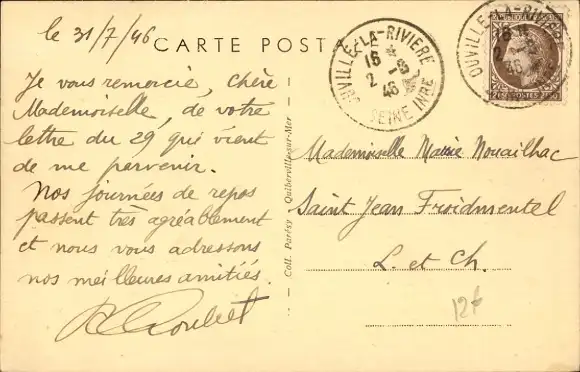 le 31/7/46
CARTE POST
Je vous remercie, Chère
Mademoiselle, de votre
lettre du 29 qui vient
de me parvenir.
Nos journées de repos
passent très agréablement
et nous vous adressons
nos meilleures amitiés.
Coll. Parésy - Quiberville-sur-Mer
OUVILLE-LA-RIVIERE
16
2 -8
46
SEINE INFRE
OUVILLE-LA-RIVIERE
POSTES
Mademoiselle Marie Nouailhac
Saint Jean Froidmentel
L. et Ch.
12f